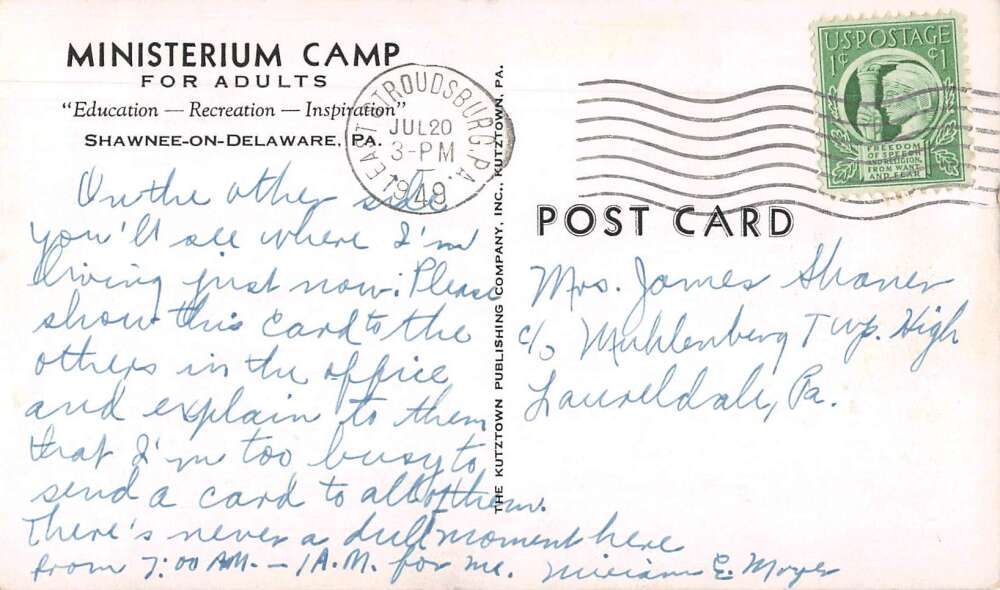 MINISTERIUM CAMP
FOR ADULTS
"Education — Recreation — Inspiration"
SHAWNEE-ON-DELAWARE, PA.
EAST STROUDSBURG PA.
JUL 20
3-PM
1949
U.S. POSTAGE
1¢ ¢1
FREEDOM
OF SPEECH
AND RELIGION,
FROM WANT
AND FEAR
THE KUTZTOWN PUBLISHING COMPANY, INC., KUTZTOWN, PA.
POST CARD
On the other side
you'll see where I'm
living just now. Please
show this card to the
others in the office
and explain to them
that I'm too busy to
send a card to all of them.
There's never a dull moment here
from 7:00 AM. – 1 A.M. for me. Miriam E. Moyer
Mrs. James Shaner
c/o Muhlenberg Twp. High
Laureldale, Pa.